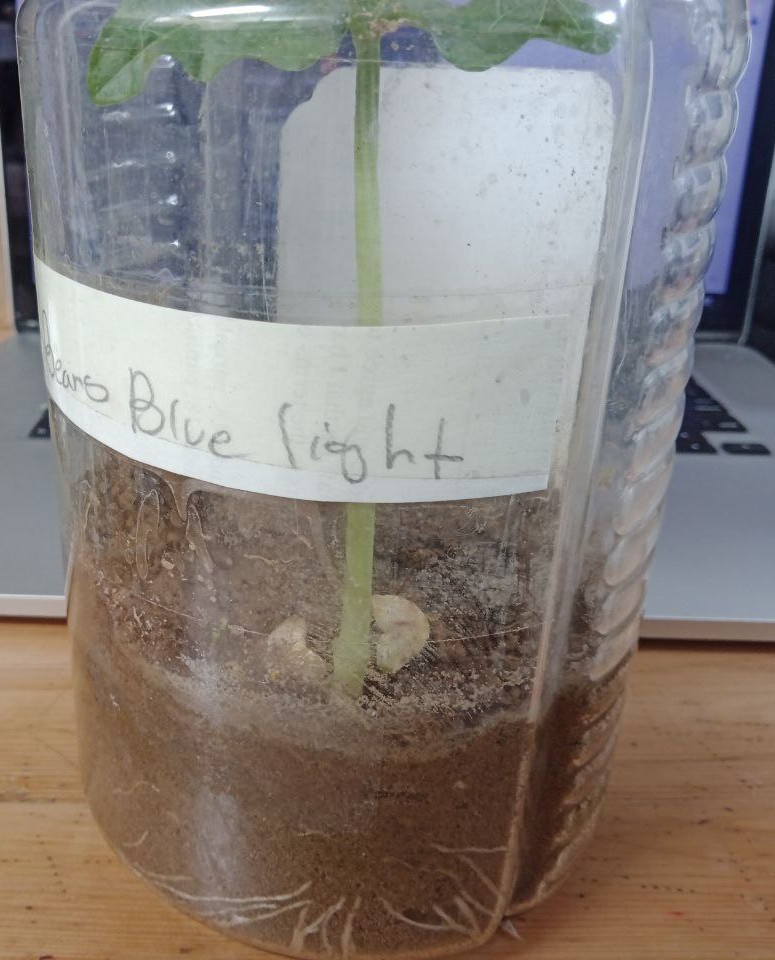 Beans Blue light